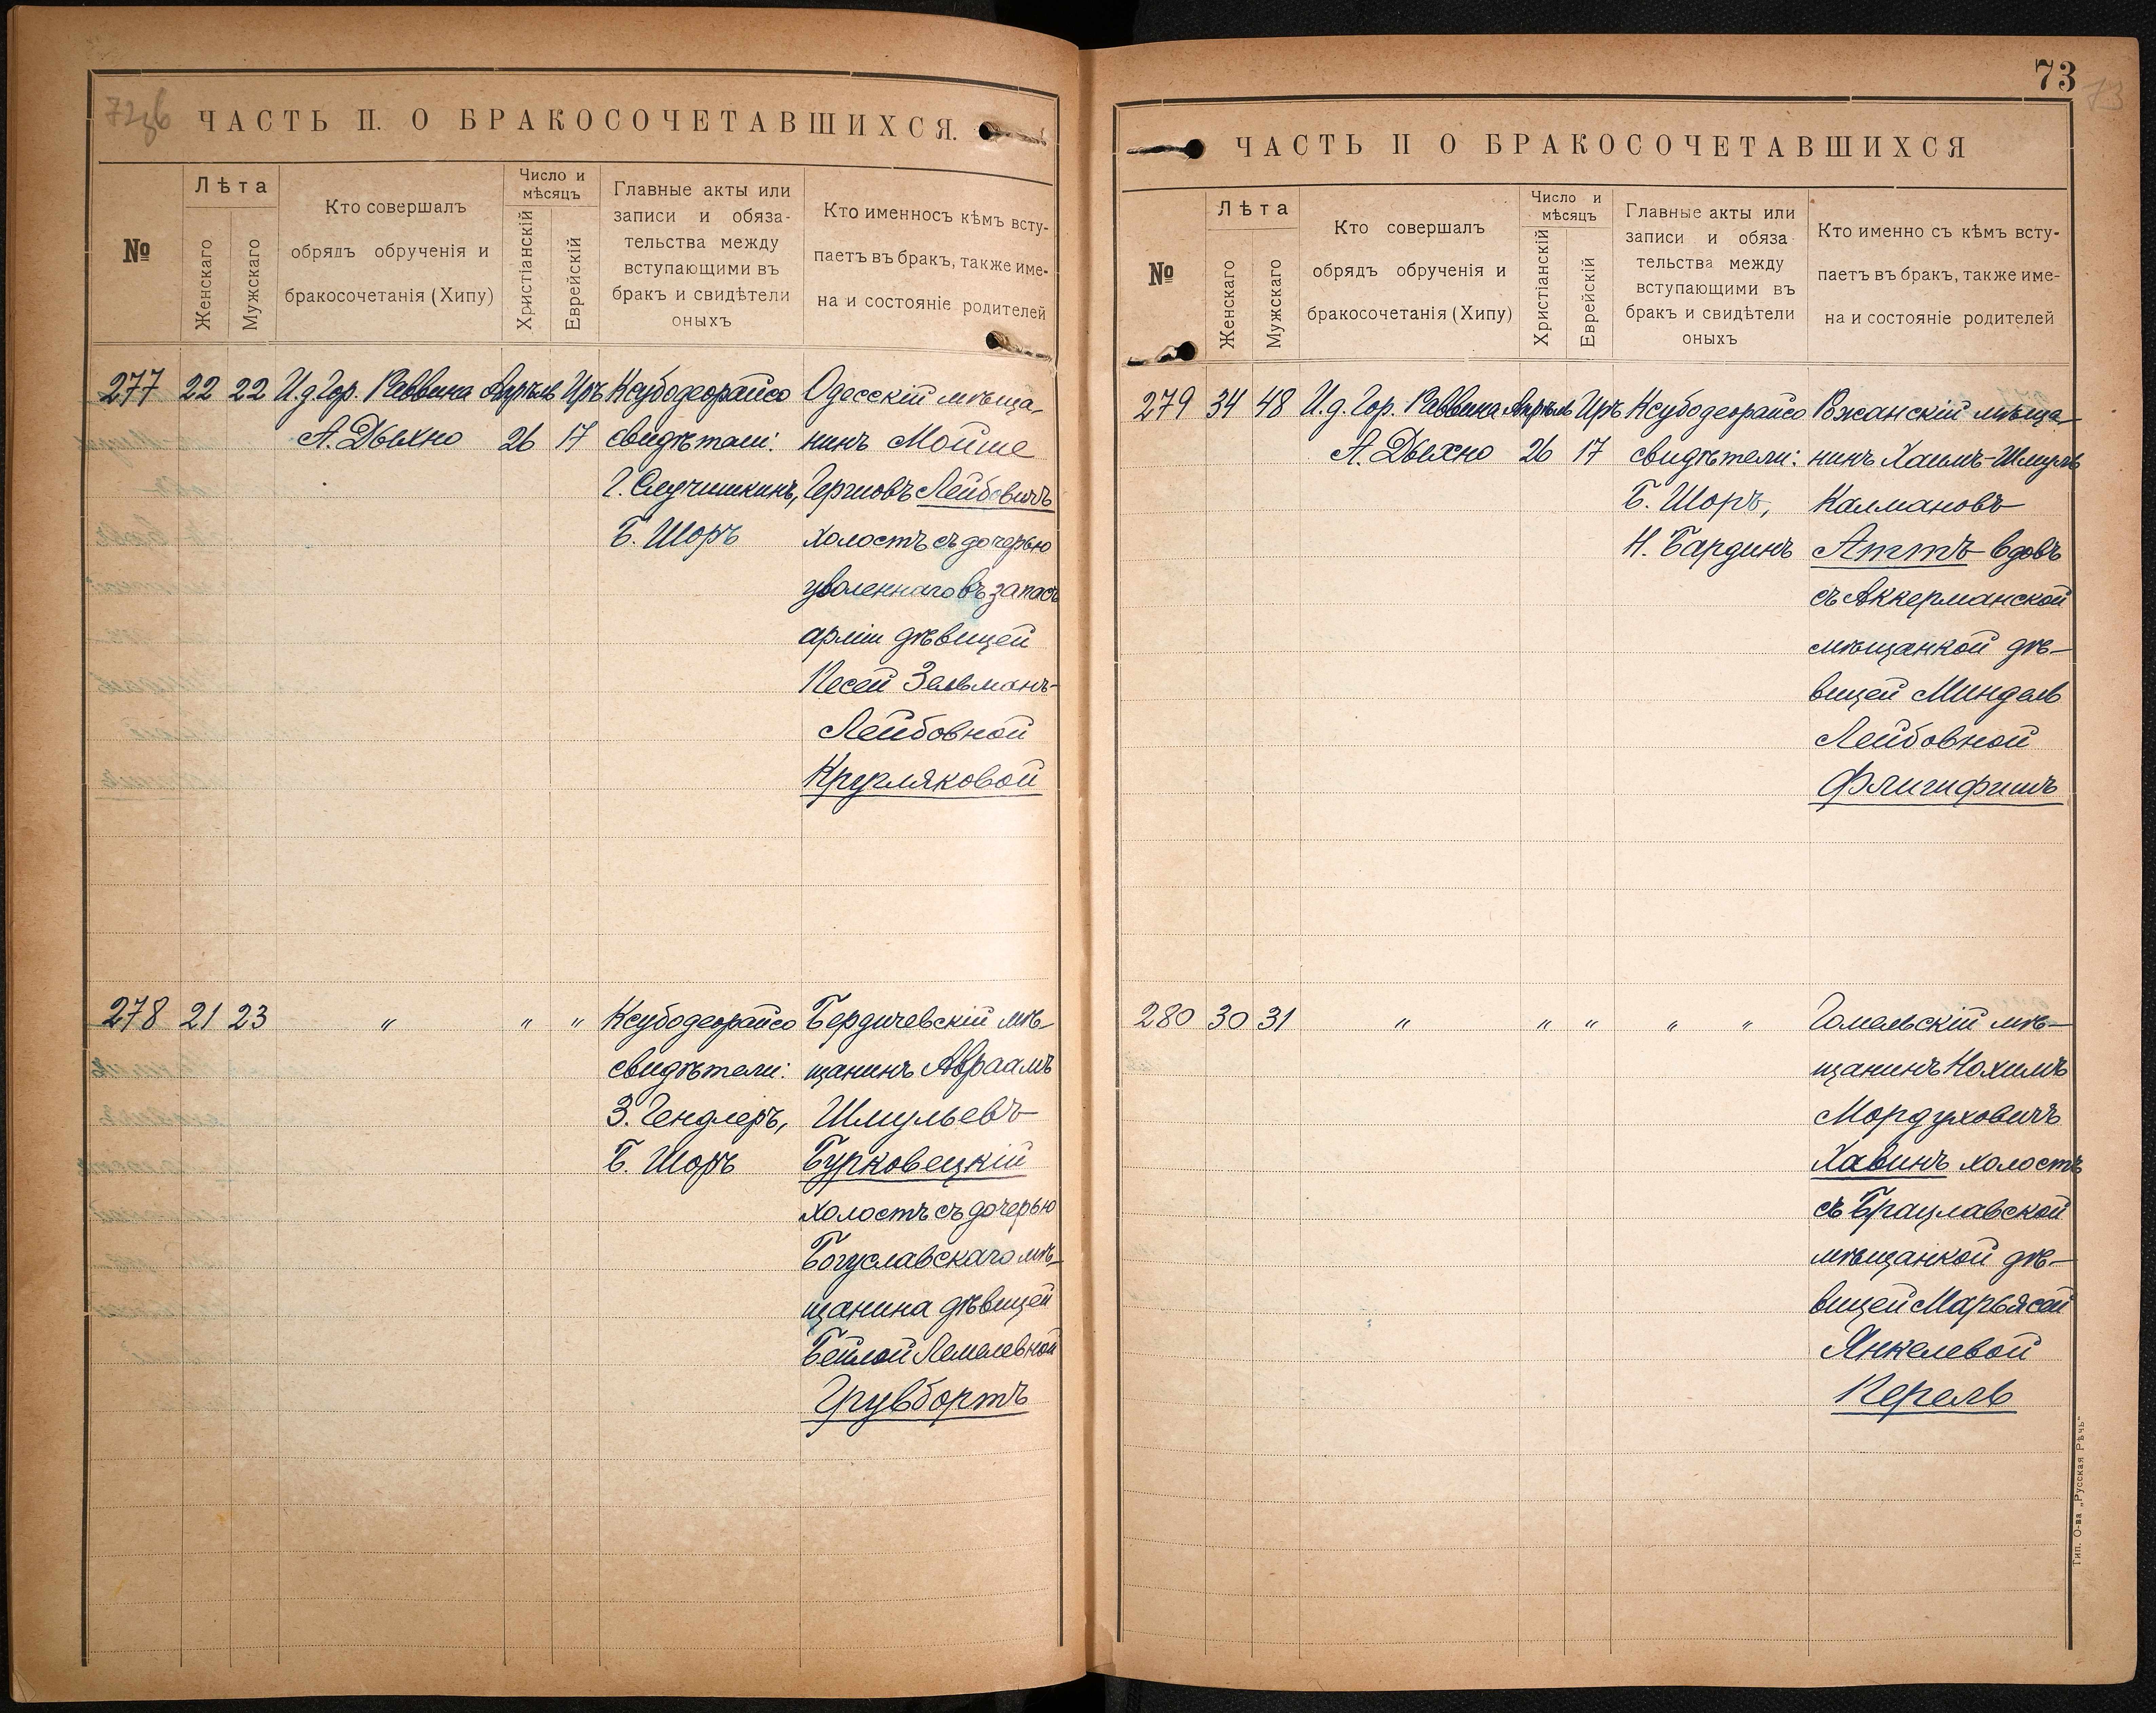 72об
ЧАСТЬ II. О БРАКОСОЧЕТАВШИХСЯ.
№
Лѣта
Женскаго
Мужскаго
Кто совершалъ
обрядъ обрученія и
бракосочетанія (Хипу)
Число и
мѣсяцъ
Христіанскій
Еврейскій
Главные акты или
записи и обяза-
тельства между
вступающими въ
бракъ и свидѣтели
оныхъ
Кто именносъ кѣмъ всту-
паетъ въ бракъ, также име-
на и состояніе родителей
277 22 22 И.д Гор. Раввина Апрѣль Иръ Ксубодеорайсо Одесскій мѣща-
А. Дыхно 26 17 свидѣтели: нинъ Мойше
Г. Случишкинъ, Гершовъ Лейбовичъ
Б. Шоръ холостъ съ дочерью
уволеннаго въ запасъ
арміи дѣвицей
Песей Зельманъ-
Лейбовной
Кругляковой
278 21 23 " " " Ксубодеорайсо Бердичевскій мѣ-
свидѣтели: щанинъ Авраамъ
З. Гендлеръ, Шмульевъ
Б. Шоръ Бурковецкій
холостъ съ дочерью
Богуславскаго мѣ-
щанина дѣвицей
Бейлой Лемелевной
Грувбортъ
73
73
ЧАСТЬ II О БРАКОСОЧЕТАВШИХСЯ
№
Лѣта
Женскаго
Мужскаго
Кто совершалъ
обрядъ обрученія и
бракосочетанія (Хипу)
Число и
мѣсяцъ
Христіанскій
Еврейскій
Главные акты или
записи и обяза
тельства между
вступающими въ
бракъ и свидѣтели
оныхъ
Кто именно съ кѣмъ всту-
паетъ въ бракъ, также име-
на и состояніе родителей
279 34 48 И.д. Гор. Раввина Апрѣль Иръ Ксубодеорайсо Ржанскій мѣща-
А. Дыхно 26 17 свидѣтели: нинъ Хаимъ-Шмуль
Б. Шоръ, Калмановъ
Н. Бардинъ Аттъ вдовъ
съ Аккерманской
мѣщанкой дѣ-
вицей Миндель
Лейбовной
Флигифишъ
280 30 31 " " " " " Гомельскій мѣ-
щанинъ Нохимъ
Мордуховичъ
Хавинъ холостъ
съ Брацлавской
мѣщанкой дѣ-
вицей Марьясей
Янкелевой
Перель
Тип. О-ва „Русская Рѣчь"